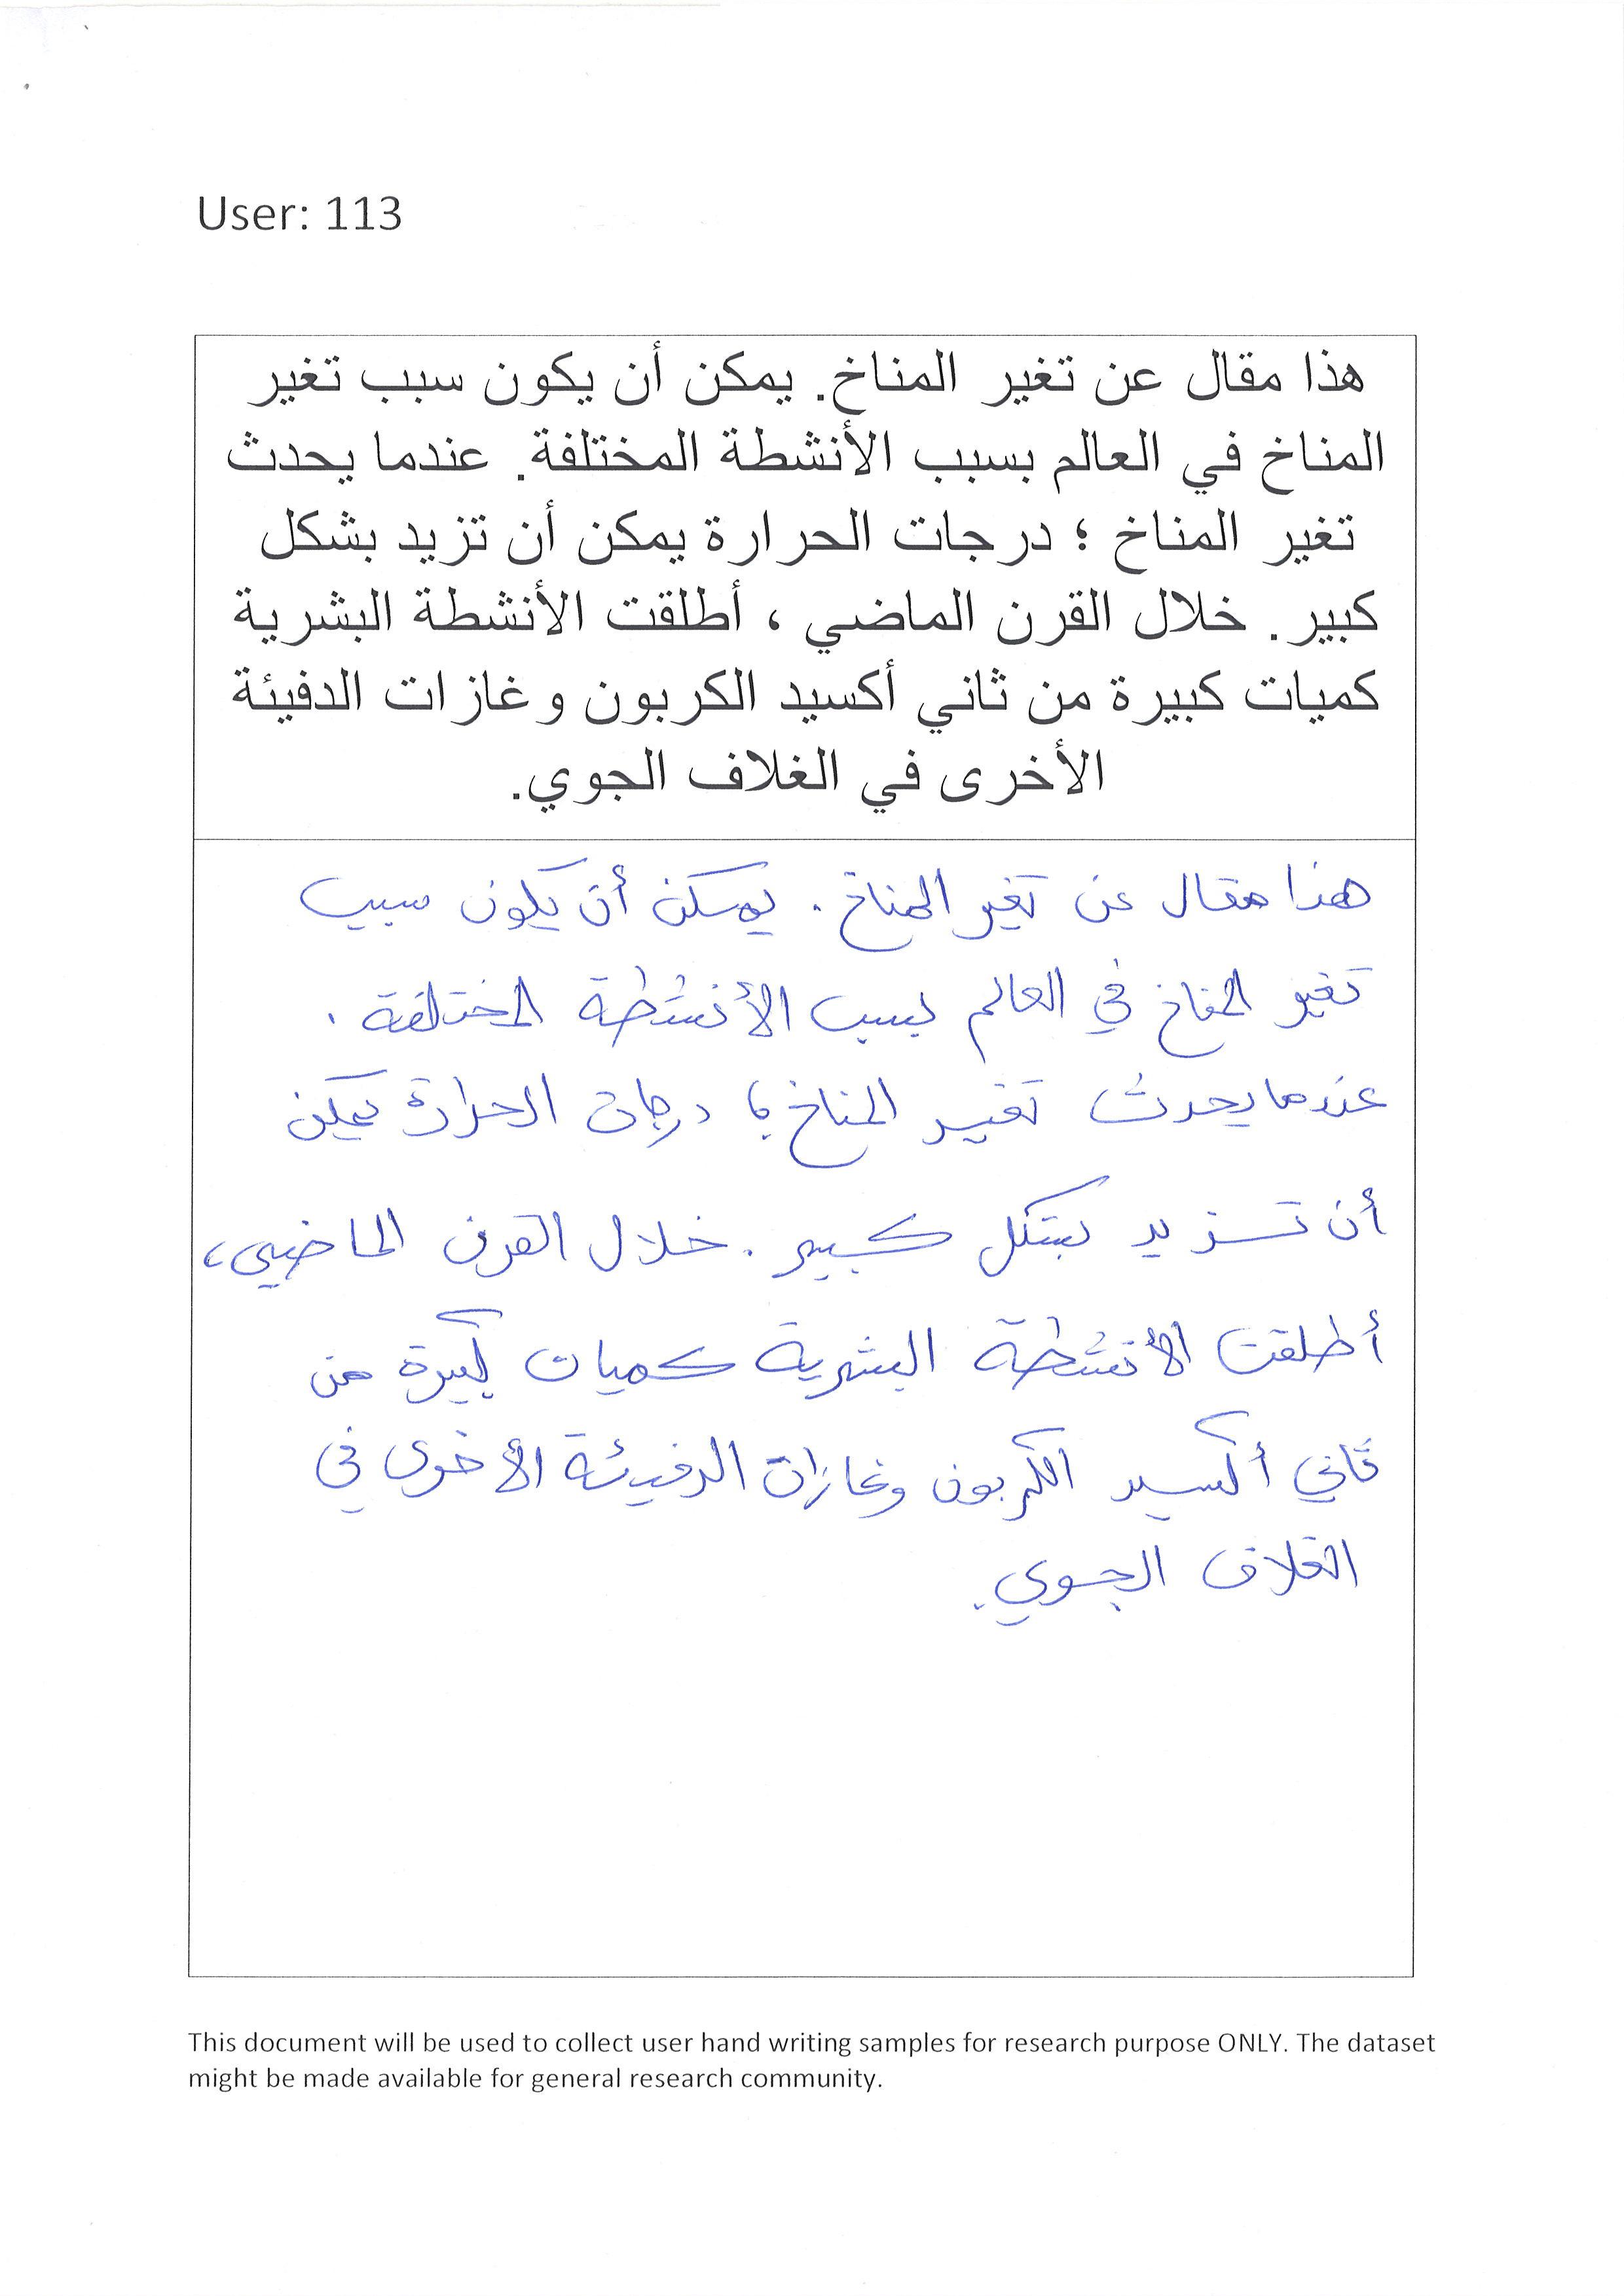 User: 113
هذا مقال عن تغير المناخ. يمكن أن يكون سبب تغير
المناخ في العالم بسبب الأنشطة المختلفة. عندما يحدث
تغير المناخ ؛ درجات الحرارة يمكن أن تزيد بشكل
كبير. خلال القرن الماضي ، أطلقت الأنشطة البشرية
كميات كبيرة من ثاني أكسيد الكربون وغازات الدفيئة
الأخرى في الغلاف الجوي.
هذا مقال عن تغير المناخ. يمكن أن يكون سبب
تغير المناخ في العالم بسبب الأنشطة المختلفة.
عندما يحدث تغير المناخ ؛ درجات الحرارة يمكن
أن تزيد بشكل كبير. خلال القرن الماضي،
أطلقت الأنشطة البشرية كميات كبيرة من
ثاني أكسيد الكربون وغازات الدفيئة الأخرى في
الغلاف الجوي.
This document will be used to collect user hand writing samples for research purpose ONLY. The dataset
might be made available for general research community.